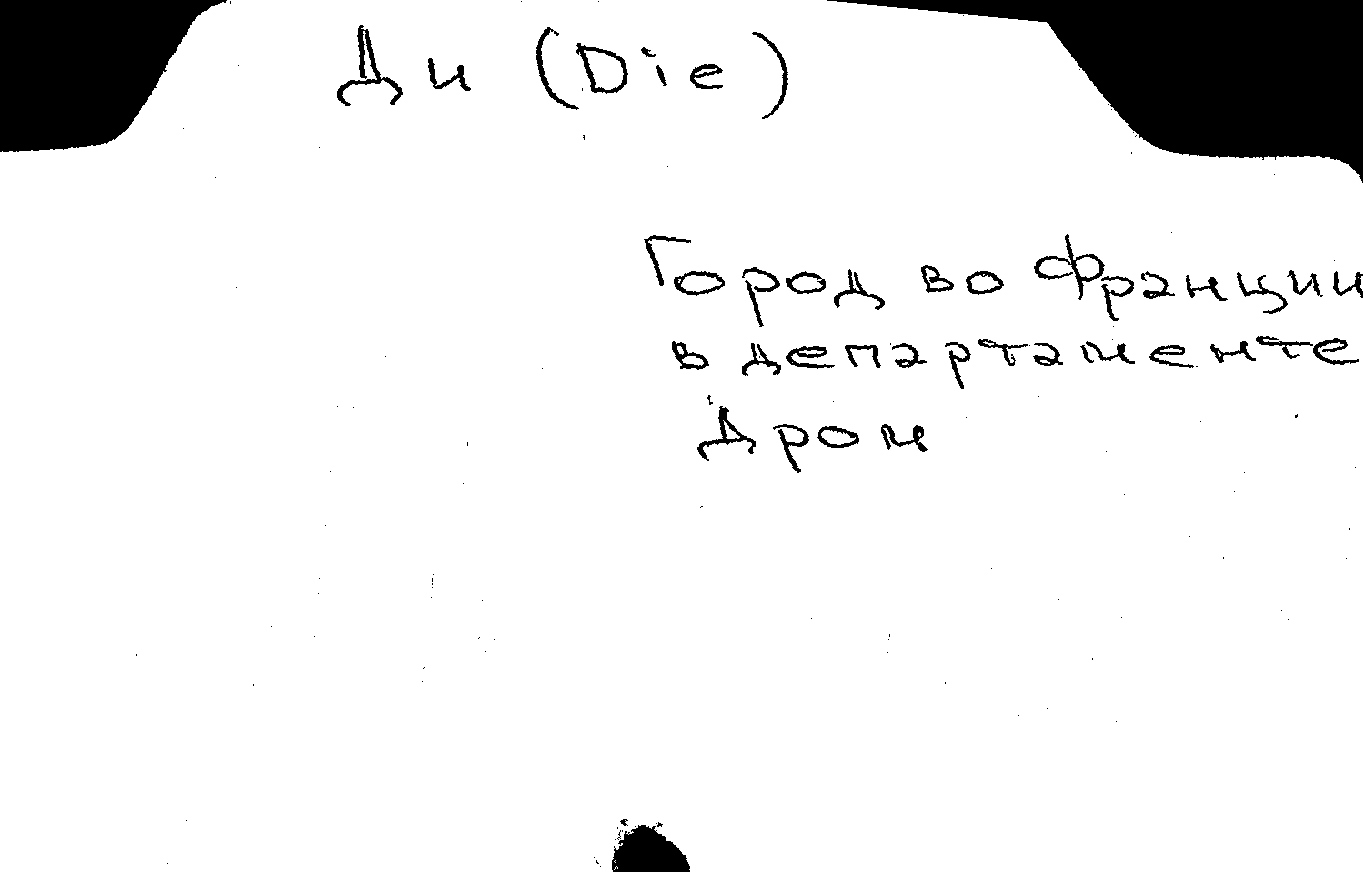 Ди (Die)
Город во Франции
в департаменте
Дром